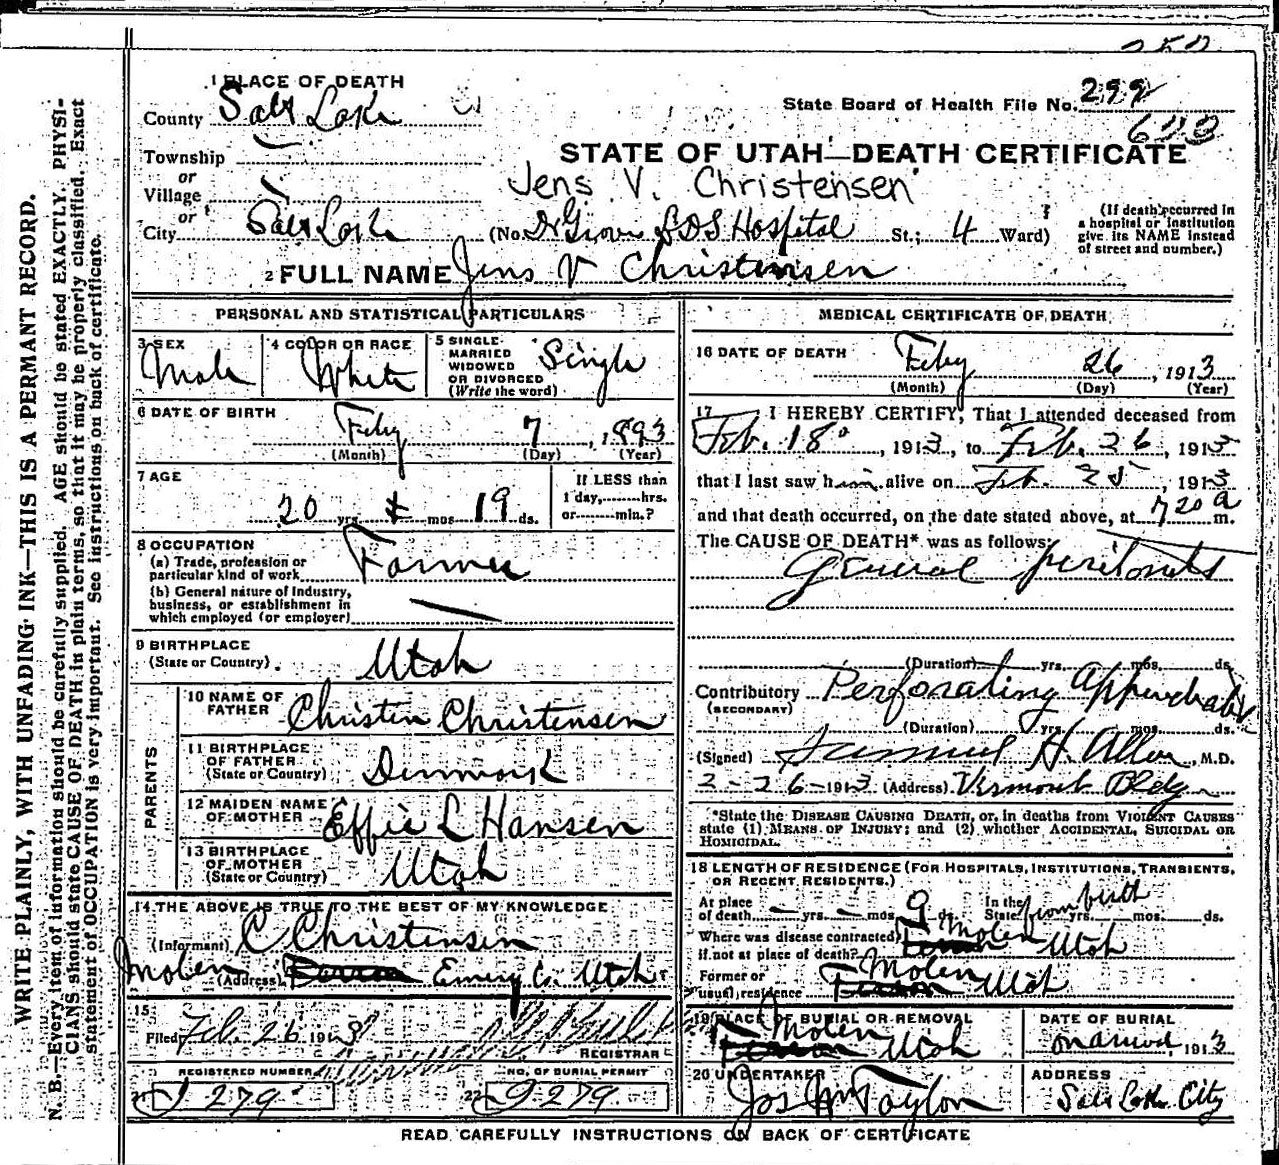 299
1 PLACE OF DEATH
State Board of Health File No.
County Salt Lake
STATE OF UTAH—DEATH CERTIFICATE
Township
or
Village
Jens V. Christensen
or
City Salt Lake (No. Dr Groves LDS Hospital St.; 4 Ward)
(If death occurred in a hospital or institution give its NAME instead of street and number.)
2 FULL NAME Jens V Christensen
PERSONAL AND STATISTICAL PARTICULARS
3 SEX
Male
4 COLOR OR RACE
White
5 SINGLE
MARRIED
WIDOWED
OR DIVORCED
(Write the word)
Single
6 DATE OF BIRTH
Feby 7, 1893
(Month) (Day) (Year)
7 AGE
20 yrs. mos 19 ds.
If LESS than
1 day, hrs.
or min.?
8 OCCUPATION
(a) Trade, profession or
particular kind of work Farmer
(b) General nature of Industry,
business, or establishment in
which employed (or employer)
9 BIRTHPLACE
(State or Country) Utah
PARENTS
10 NAME OF
FATHER Christen Christensen
11 BIRTHPLACE
OF FATHER
(State or Country) Denmark
12 MAIDEN NAME
OF MOTHER Effie L Hansen
13 BIRTHPLACE
OF MOTHER
(State or Country) Utah
14 THE ABOVE IS TRUE TO THE BEST OF MY KNOWLEDGE
(Informant) C Christensen
Molen (Address) Emery Co. Utah
15
Filed Feb. 26 191
REGISTRAR
REGISTERED NUMBER
279
NO. OF BURIAL PERMIT
22 279
MEDICAL CERTIFICATE OF DEATH
16 DATE OF DEATH
Feby 26, 1913
(Month) (Day) (Year)
17 I HEREBY CERTIFY, That I attended deceased from
Feb. 18, 1913, to Feb. 26, 1913
that I last saw him alive on Feb. 25, 1913
and that death occurred, on the date stated above, at 7 20 a m.
The CAUSE OF DEATH* was as follows:
General peritonitis
(Duration) yrs. mos. ds.
Contributory Perforating Appendicitis
(SECONDARY)
(Duration) yrs. mos. ds.
(Signed) Samuel H. Allen, M.D.
2-26-1913 (Address) Vermont Bldg
*State the DISEASE CAUSING DEATH, or, in deaths from VIOLENT CAUSES
state (1) MEANS OF INJURY; and (2) whether ACCIDENTAL, SUICIDAL OR
HOMICIDAL.
18 LENGTH OF RESIDENCE (FOR HOSPITALS, INSTITUTIONS, TRANSIENTS,
OR RECENT RESIDENTS.)
At place
of death — yrs. — mos 9 ds. In the
State from birth yrs. mos. ds.
Where was disease contracted,
if not at place of death? Molen Utah
Former or
usual residence Molen Utah
19 PLACE OF BURIAL OR REMOVAL
Molen Utah
DATE OF BURIAL
1913
20 UNDERTAKER
Jos Wm Taylor
ADDRESS
Salt Lake City
READ CAREFULLY INSTRUCTIONS ON BACK OF CERTIFICATE
WRITE PLAINLY, WITH UNFADING INK—THIS IS A PERMANT RECORD.
N. B.—Every item of information should be carefully supplied. AGE should be stated EXACTLY. PHYSI-
CIANS should state CAUSE OF DEATH in plain terms, so that it may be properly classified. Exact
statement of OCCUPATION is very important. See instructions on back of certificate.